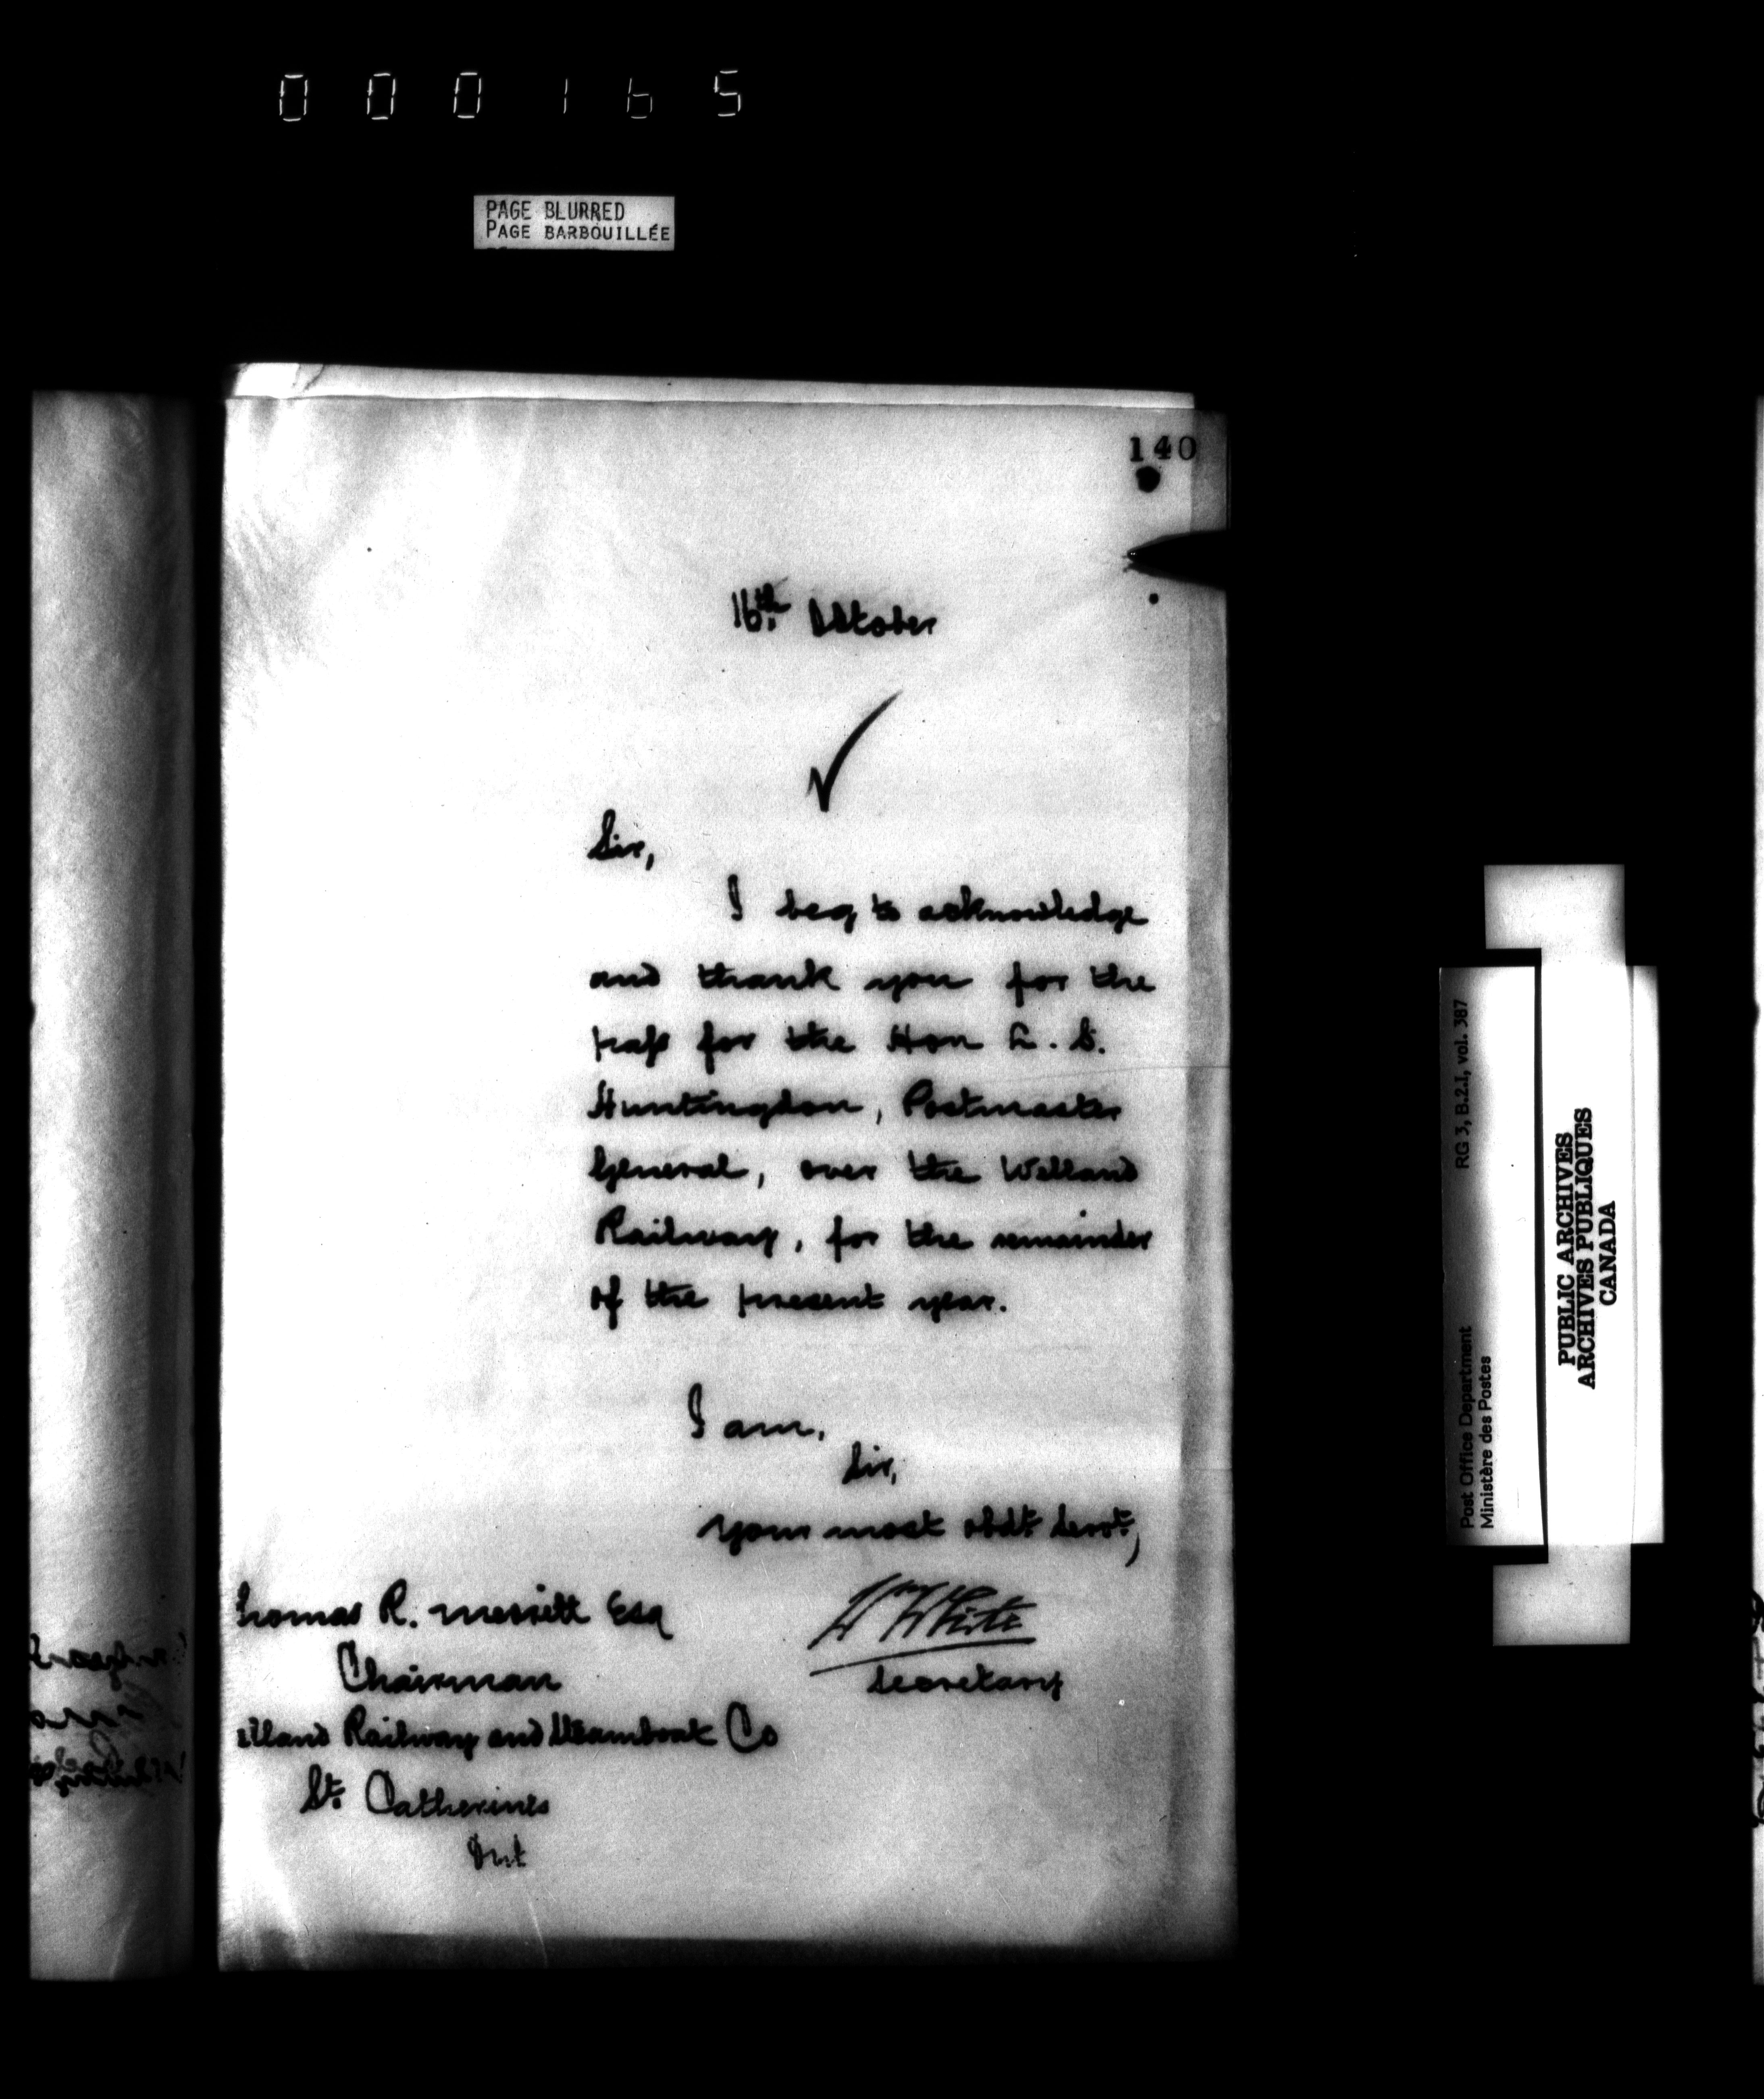 000165
PAGE BLURRED
PAGE BARBOUILLÉE
140
16th. October
Sir,
I beg to acknowledge
and thank you for the
pass for the Hon L. S.
Huntingdon, Postmaster
General, over the Welland
Railway, for the remainder
of the present year.
I am,
Sir,
your most obdt. Servt.,
homas R. Merritt Esq
W White
Chairman
Secretary
elland Railway and Steamboat Co
St. Catherines
Ont
RG 3, B.2.1, vol. 387
Post Office Department
Ministère des Postes
PUBLIC ARCHIVES
ARCHIVES PUBLIQUES
CANADA